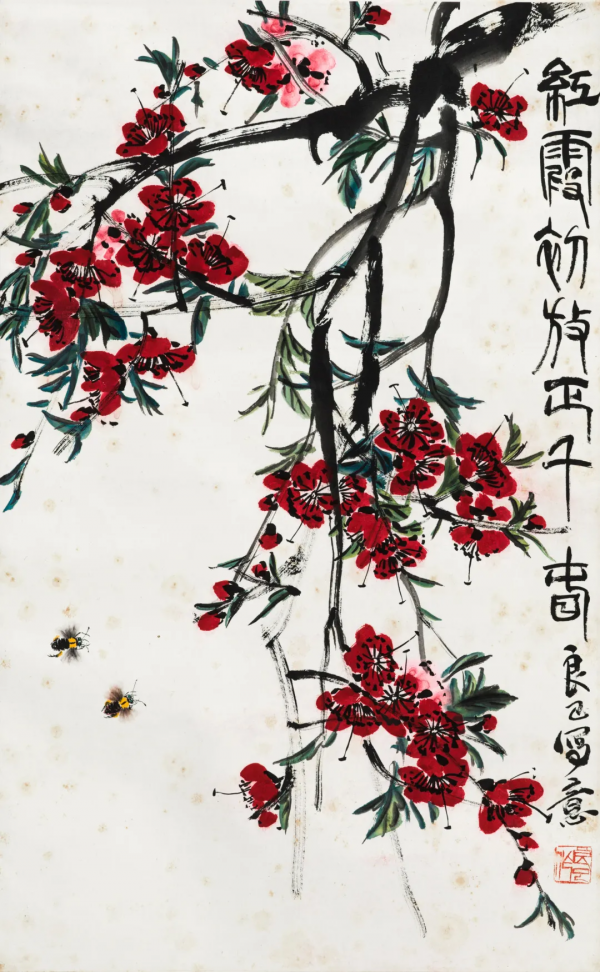 紅霞初放正千春 良已寫意